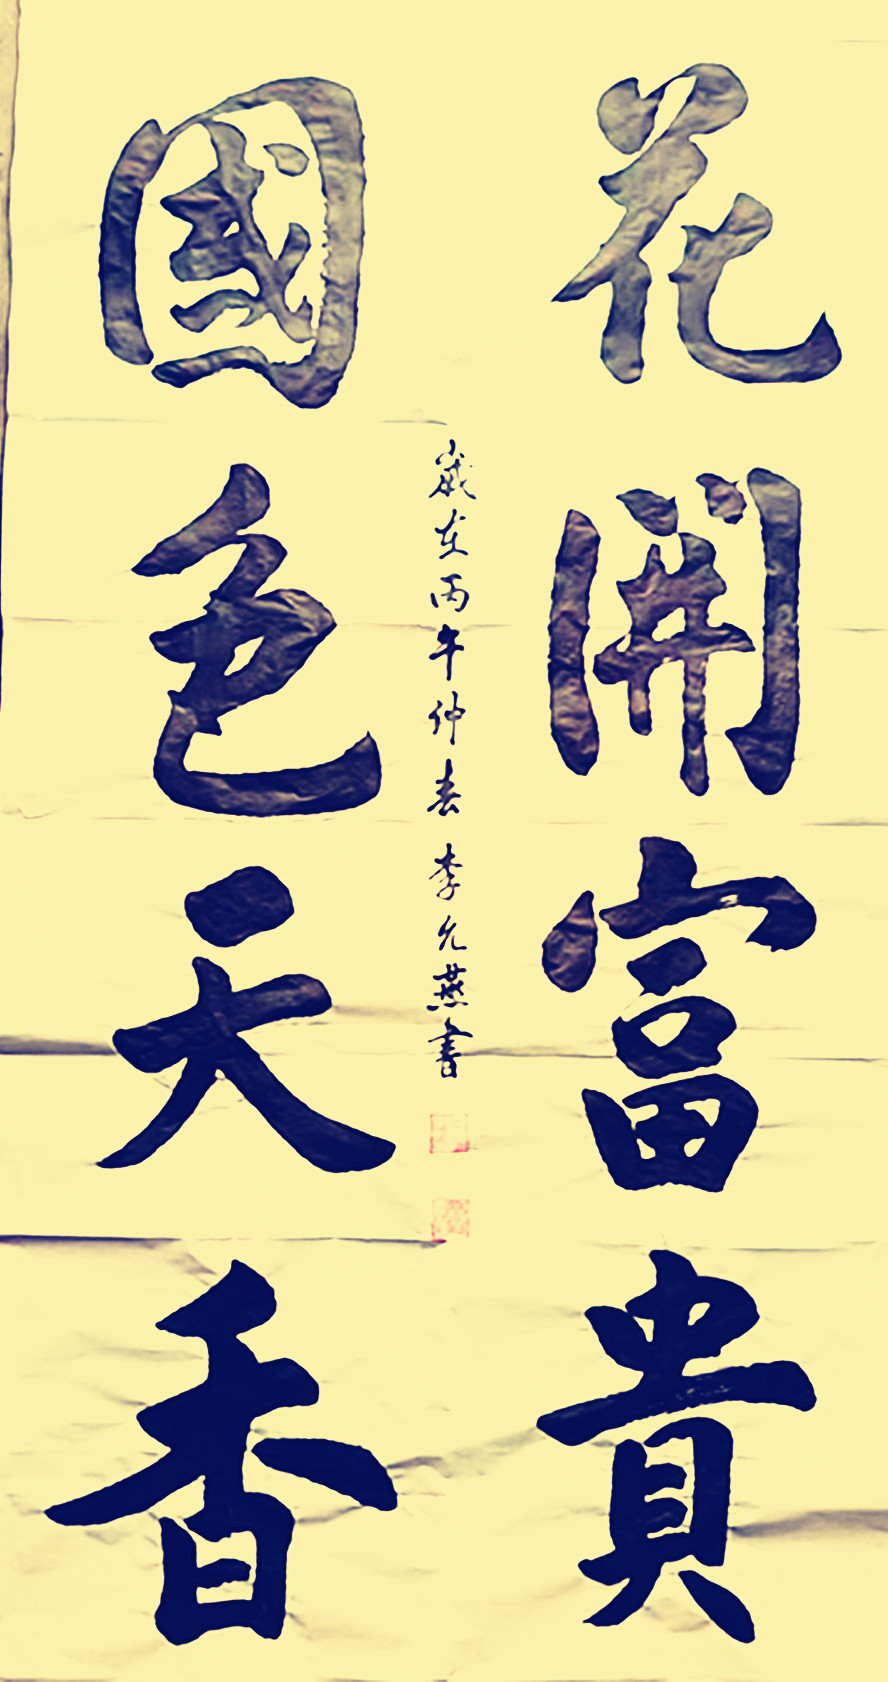 花開富貴
國色天香
歲在丙午仲春 李允燕書